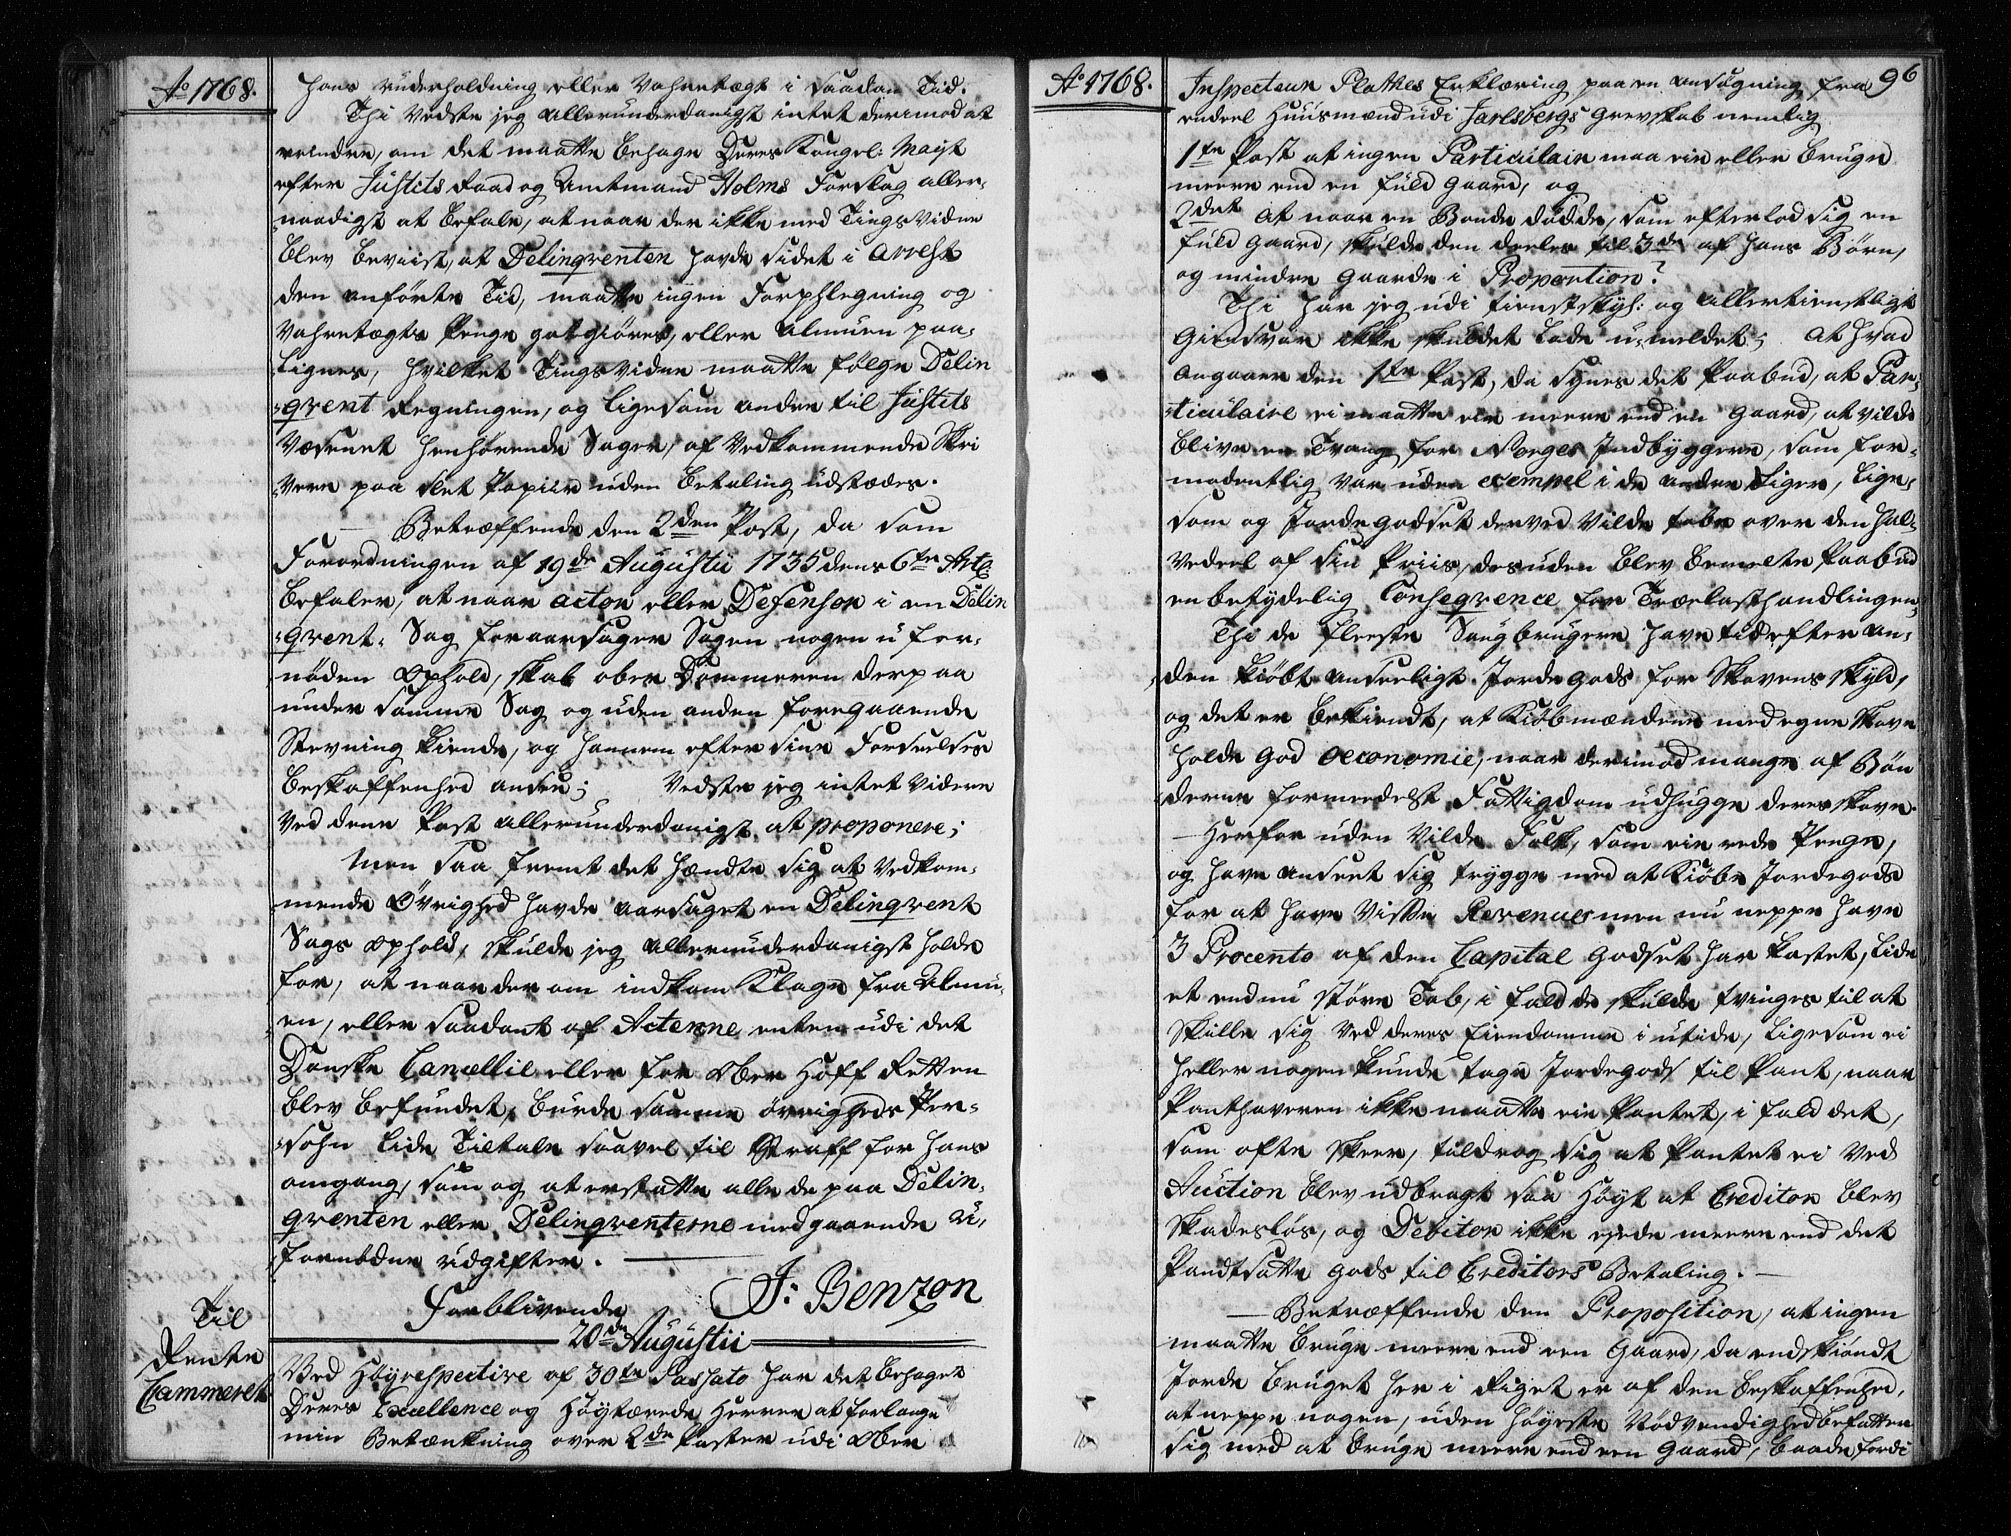 Ao 1768.
hans underholdning eller Vahretægt i saadan Tid.
Thi Vedste jeg allerunderdanigst intet derimod at
erindre, om det maatte behage Deres Kongel: Mayt
efter Justits Raad og Amtmand Holms Forslag aller-
naadigst at befale, at naar der ikke med TingsVidne
blev beviist, at Delinqventen havde sidet i Arrest
den anførte Tid, maatte ingen Forphlegning og
Vahretægts Penge godgiøres, eller Almuen paa-
lignes, hvilket TingsVidne maatte følge Delin
-qvent Regningen, og ligesom andre til Justits
Væsenet henhørende Sager, af Vedkommende Skri
Vere paa slet Papiir uden betaling udstædes.
Betræffende den 2den Post, da som
Forordningen af 19de Augustii 1735 dens 6te Art:
befaler, at naar actor eller Defensor i en Delin
-qvent- Sag foraarsager Sagen nogen ufor-
nøden Ophold, skal ober Dommeren derpaa
under samme Sag og uden anden foregaaende
Stevning kiende, og hannem efter sine Forseelses
beskaffenhed ansee; Vedste jeg intet videre
Ved denne Post allerunderdanigst at proponere;
Men saa fremt det hændte sig at Vedkom-
mende Øvrighed havde aarsaget en Delinqvent
Sags Ophold, skulde jeg allerunderdanigst holde
for, at naar der om indkom Klage fra Almu-
en, eller saadant af Acterne enten udi det
Danske Cancellie eller for Ober Hoff Retten
blev befundet, burde samme øvrigheds Per-
-sohn lide Tiltale saavel til Straff for hans
omgang, som og at erstatte alle de paa Delin-
qventen eller Delinqventerne medgaaende u-
fornødne udgifter.
Forblivende J: Benzon
20de Augustii
Til
Rente
Cammeret
Ved Høyrespective af 30te Passato har det behaget
Deres Excellence og Høytærede Herrer at forlange
min Betænkning over 2de Poster udi Ober
Ao 1768.
96
Inspecteur Plathes Erklæring paa en ansøgning fra
endeel Huusmænd udi Jarlsbergs Grevskab nemlig
1te Post at ingen Particulair maa eie eller bruge
meere end en fuld gaard, og
2det at naar en Bonde døde, som efterlod sig en
fuld gaard, skulde den deeles til 3de af hans Børn,
og mindre gaarde i Proportion?
Thi har jeg udi tienstskyl: og allertienstligst
Giensvar ikke skuldet lade u-meldet; at hvad
angaaer den 1te Post, da synes det Paabud, at Par-
-ticulaire ei maatte eie meere end en gaard, at vilde
blive en Tvang for Norges Indbyggere, som for-
modentlig var uden exempel i de andre Riger, lige-
som og Jordegodset derved vilde tabe over den hal-
vedeel af sin Priis, desuden blev bemelte Paabud
en betydelig Conseqvence for Trælasthandlingen,
Thi de fleeste Saugbrugere have tid efter an-
den kiøbt anseeligt Jordegods for Skovens skyld,
og det er bekiendt, at Kiøbmændene med egne Skove
holde god oeconomie, naar derimod mange af Bøn
derne formedelst Fattigdom udhugge deres skove.
Herfor uden vilde Folk, som eie rede Penge,
og have anseet sig trygge med at Kiøbe Jordegods
for at have visse Revenuer men nu neppe have
3 Procento af den Capital godset har kostet, lide
et endnu større Tab, i fald de skulde tvinges til at
skille sig ved deres Eiendomme i utide, ligesom ei
heller nogen kunde tage Jordegods til Pant, naar
Panthaveren ikke maatte eie Pantet, i fald det,
som ofte skeer, tildrog sig at Pantet ei ved
Auction blev udbragt saa høyt at Creditor blev
Skadesløs, og Debitor ikke eyede meere end det
Pandtsatte gods til Creditors Betaling.
Betræffende den Proposition, at ingen
maatte bruge meere end een Gaard, da endskiøndt
Jorde bruget her i Riget er af den beskaffenhed,
at neppe nogen, uden høyeste Nødvendighed befatter
sig med at bruge meere end een Gaard, baade fordi